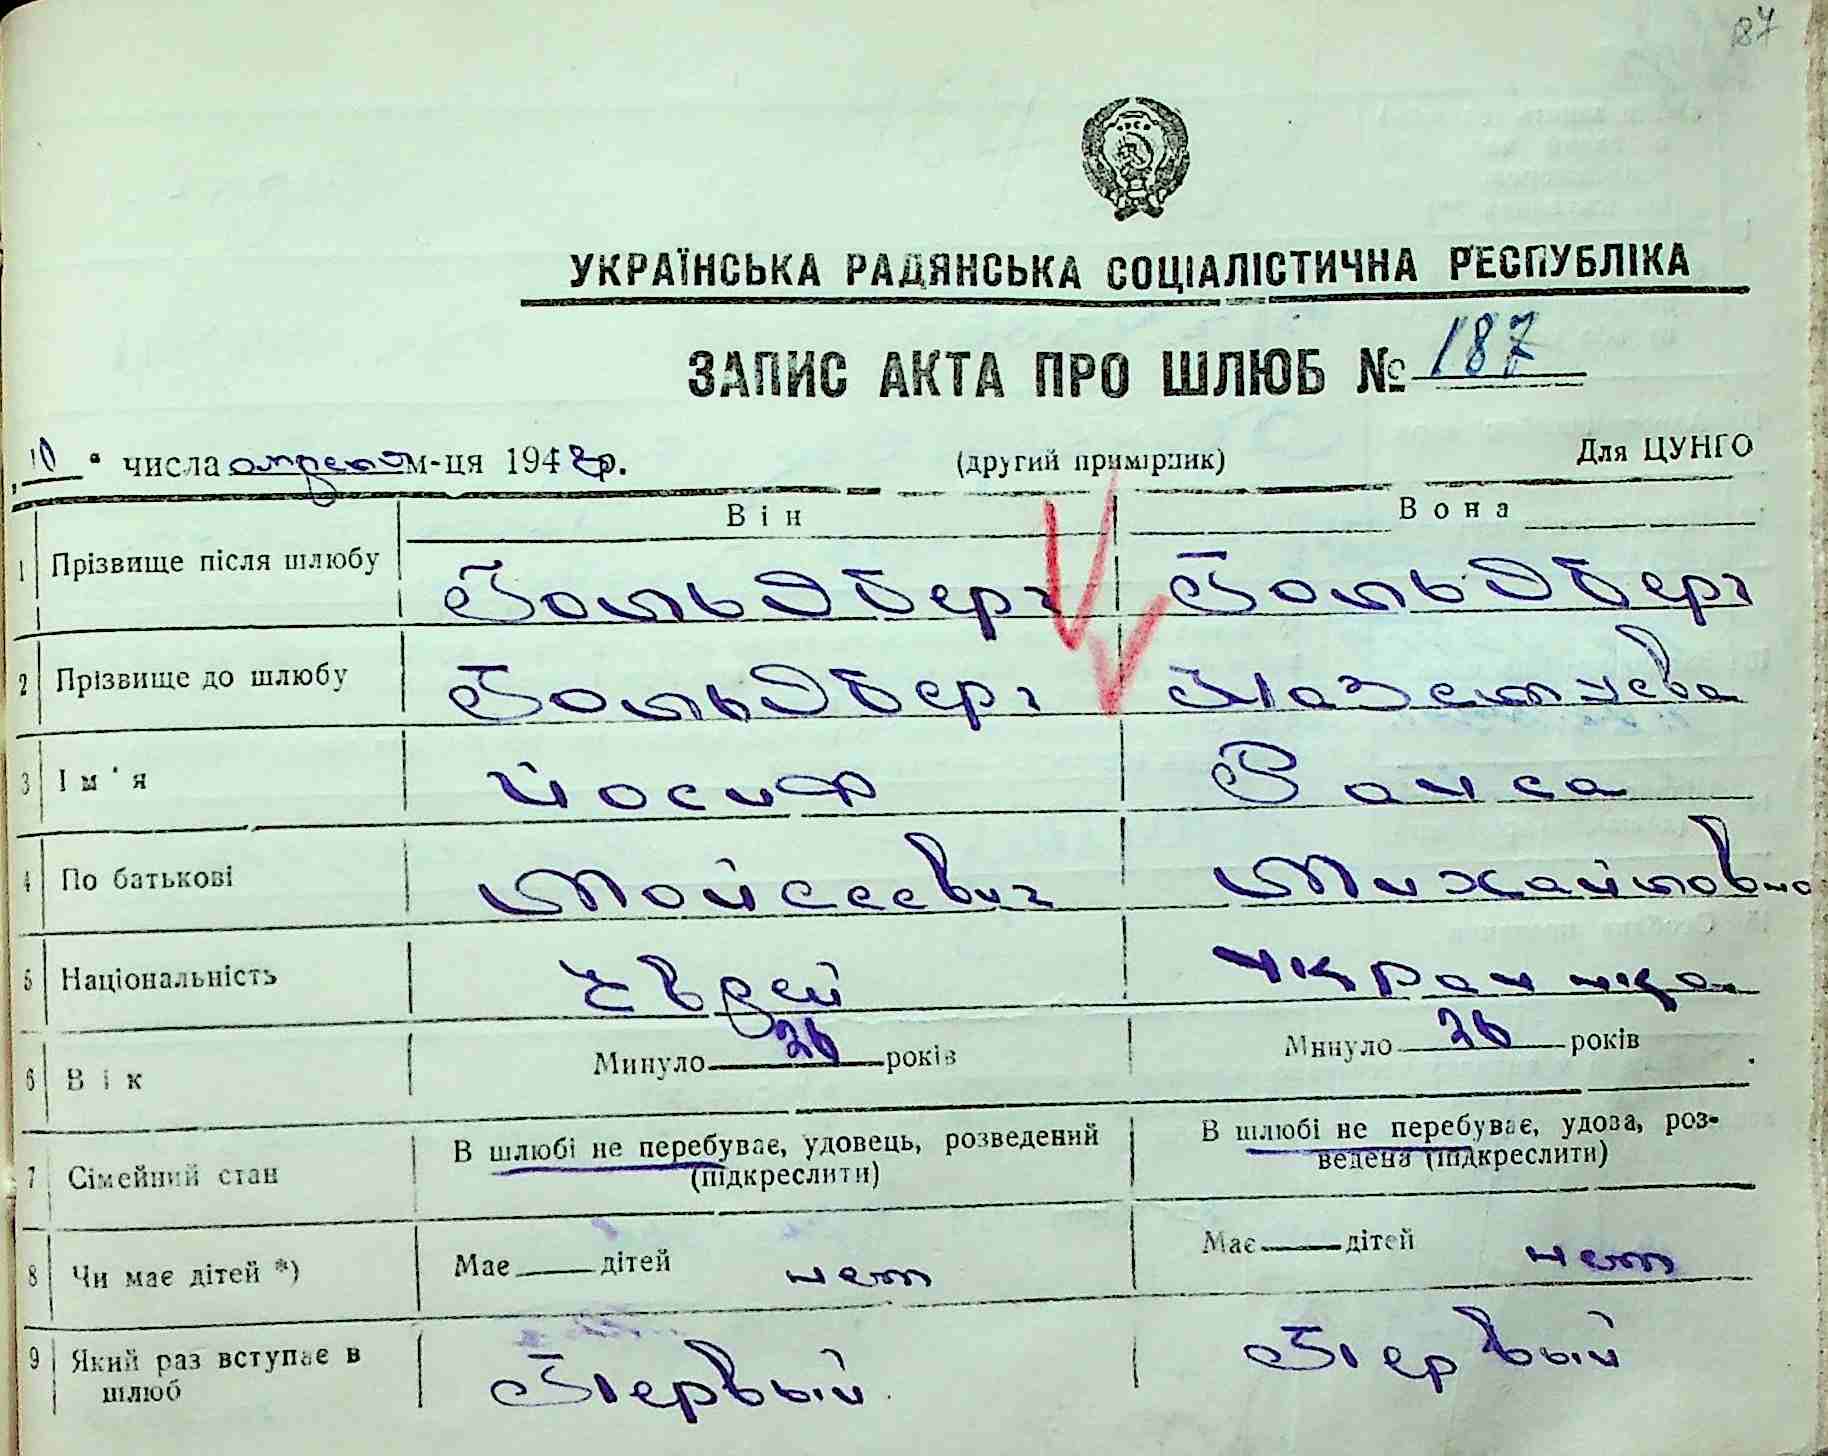 87
УКРАЇНСЬКА РАДЯНСЬКА СОЦІАЛІСТИЧНА РЕСПУБЛІКА
ЗАПИС АКТА ПРО ШЛЮБ № 187
„10“ числа апреля м-ця 194 р.
(другий примірник)
Для ЦУНГО
Він Вона
1 Прізвище після шлюбу Гольдберг Гольдберг
2 Прізвище до шлюбу Гольдберг
3 Ім'я Йосиф Раиса
4 По батькові Мойсеевич Михайловна
5 Національність Еврей Украинка
6 Вік Минуло 26 років Минуло 26 років
7 Сімейний стан В шлюбі не перебуває, удовець, розведений (підкреслити) В шлюбі не перебуває, удова, роз-
ведена (підкреслити)
8 Чи має дітей *) Має дітей нет Має дітей нет
9 Який раз вступає в шлюб Первый Первый